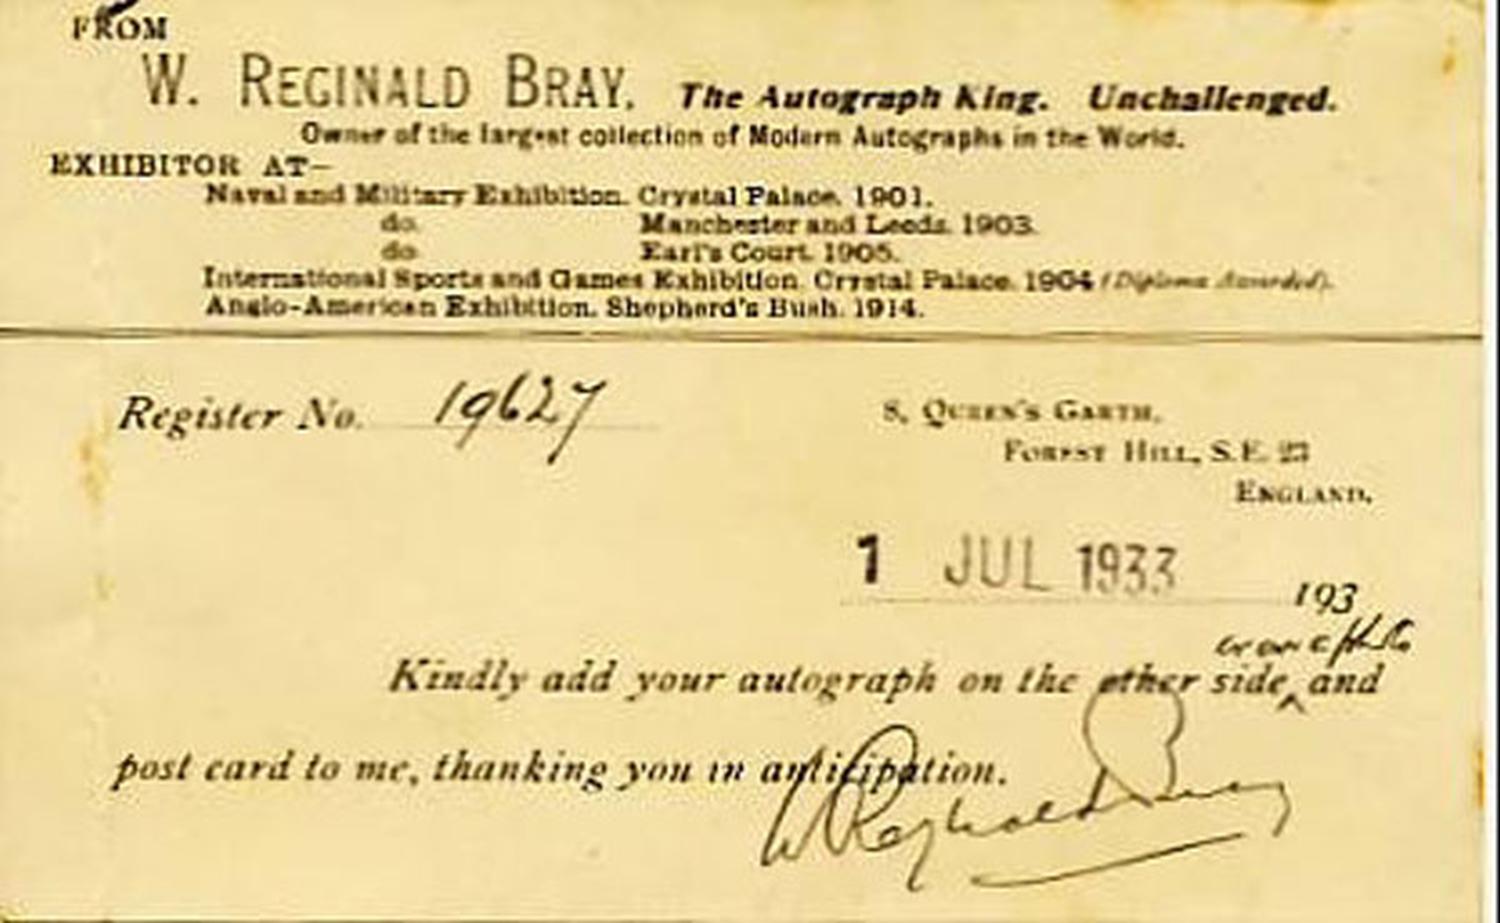 FROM
W. REGINALD BRAY. The Autograph King. Unchallenged.
Owner of the largest collection of Modern Autographs in the World.
EXHIBITOR AT—
Naval and Military Exhibition. Crystal Palace. 1901.
do. Manchester and Leeds. 1903.
do Earl's Court. 1905.
International Sports and Games Exhibition. Crystal Palace. 1904 (Diploma Awarded).
Anglo-American Exhibition. Shepherd's Bush. 1914.
Register No. 19627
8, QUEEN'S GARTH,
FOREST HILL, S.E. 23
ENGLAND.
1 JUL 1933 193
Kindly add your autograph on the other side, and
post card to me, thanking you in anticipation.
W Reginald Bray